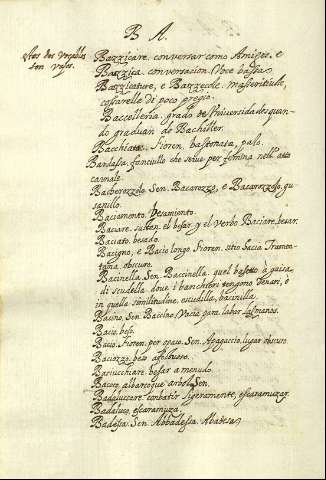 B A.
Estos dos vocablos
son vajos.
Bazzicare. conversar como Amigos. e
Bazzica. conversacion. (Voce bassa)
Bazzicature, e Bazzecole. masseritiule,
cosarelle di poco pregio.
Baccelleria. grado de Universidades quan-
do graduan de Bachiller.
Bacchiata. Fioren. bastonata, palo.
Bardassa. fanciullo che serve per femina nell' atto
carnale.
Bacherozzolo. Sen. Bacarozzo, e Bacarozzolo, gu-
sanillo.
Baciamento. besamiento.
Baciare. sustan. el besar, y el verbo Baciare, besar.
Baciato, besado.
Bacigno, e Bacio longo. Fioren. sitio hacia Tramon-
tana, obscuro.
Bacinella. Sen. Baccinella. quel bassetto à guisa
di scudella dove i banchieri tengono denari, e
in quella similitudine, escudilla, bacinilla.
Bacino. Sen. Baccino, (Vacia para labar las manos.
Bacio, beso.
Bacio. Fioren. per opaco. Sen. Apagaccio, lugar obscuro
Baciozzo, beso
Baciucchiare, besar a menudo.
Bacoco, albarcoque arbol. Sen.
Badaluccare. combatir ligeramente, escaramuzar.
Badaluco, escaramuza.
Badessa. Sen. Abbadessa. Abadesa